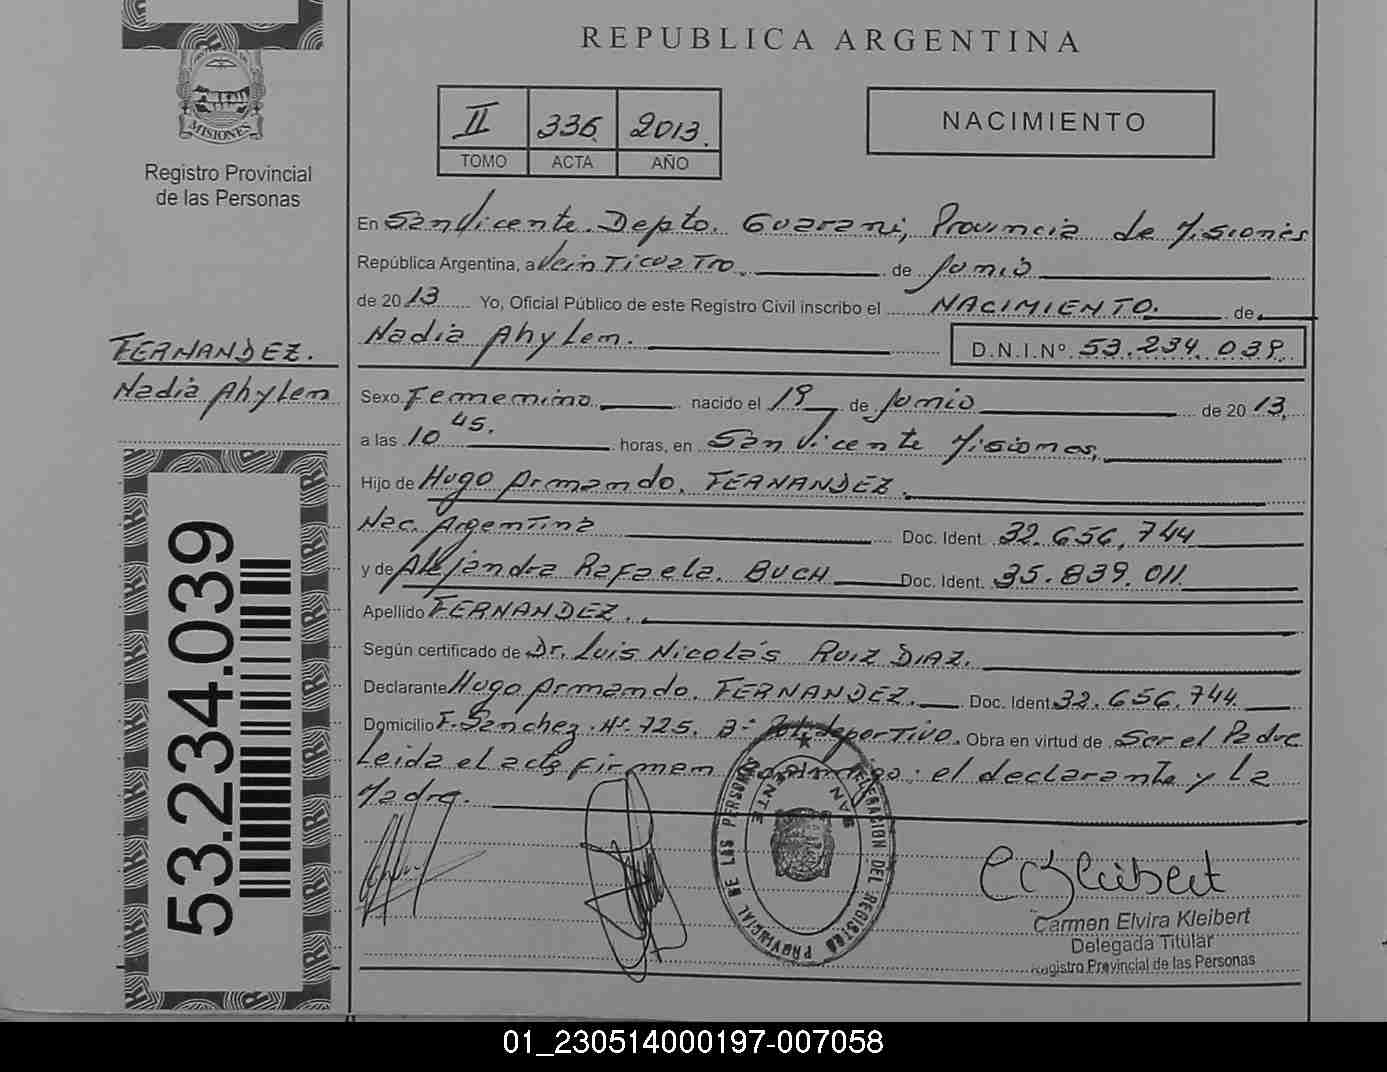 REPUBLICA ARGENTINA
II 336 2013.
TOMO ACTA AÑO
NACIMIENTO
MISIONES
Registro Provincial
de las Personas
En San Vicente. Depto. Guarani, Provincia de Misiones
República Argentina, a Veinticuatro. de Junio
de 2013 Yo, Oficial Público de este Registro Civil inscribo el NACIMIENTO. de
Nadia Ahylem. D.N.I.Nº 53.234.039.
FERNANDEZ.
Nadia Ahylem
Sexo Femenino nacido el 19 de Junio de 2013,
a las 10 45. horas, en San Vicente Misiones,
Hijo de Hugo Armando. FERNANDEZ.
Nac. Argentina Doc. Ident. 32.656.744
y de Alejandra Rafaela. BUCH Doc. Ident. 35.839.011
Apellido FERNANDEZ.
Según certificado de Dr. Luis Nicolás RUIZ DIAZ.
Declarante Hugo Armando. FERNANDEZ. Doc. Ident. 32.656.744
Domicilio F. Sánchez. Nº 725. Bº Polideportivo. Obra en virtud de Ser el Padre
Leida el acta firman conmigo. el declarante y La
Madre.
53.234.039
PROVINCIAL DE LAS PERSONAS
DEL REGISTRO
SAN VICENTE
CKleibert
Carmen Elvira Kleibert
Delegada Titular
Registro Provincial de las Personas
01_230514000197-007058